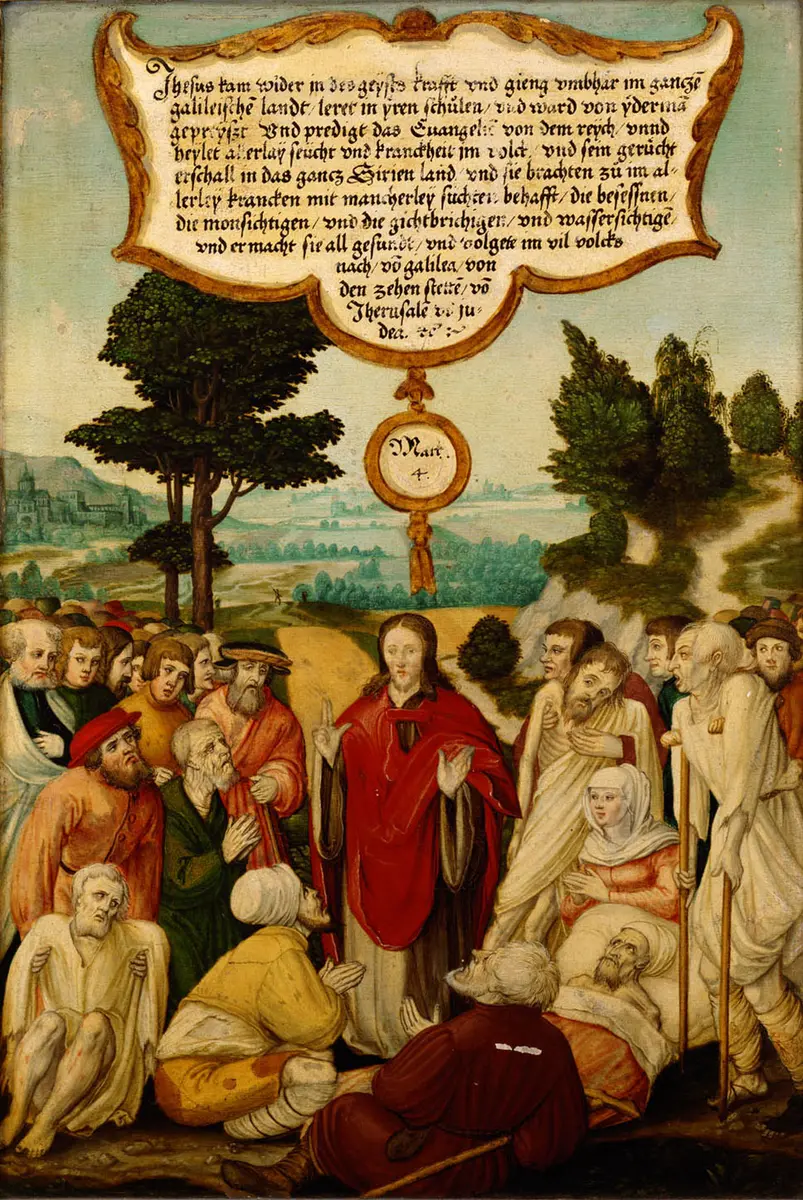 Jhesus kam wider in des geysts krafft vnd gieng vmbhar im ganczē
galileischē landt / leret in yren schůlen / vnd ward von yderman̄
gepreyszt Vnd predigt das Euangeliū von dem reych / vnnd
heylet allerlay seücht vnd kranckheit im volck / vnd sein gerücht
erschall in das gancz Sirien land / vnd sie brachten zů im al-
lerley krancken mit mancherley süchten behafft / die besessnen /
die monsichtigen / vnd die gichtbrichigen / vnd wassersichtigē /
vnd er macht sie all gesundt / vnd volgete im vil volcks
nach / vō galilea / von
den zehen stetē / vō
Jherusalē vō ju-
dea.
4.